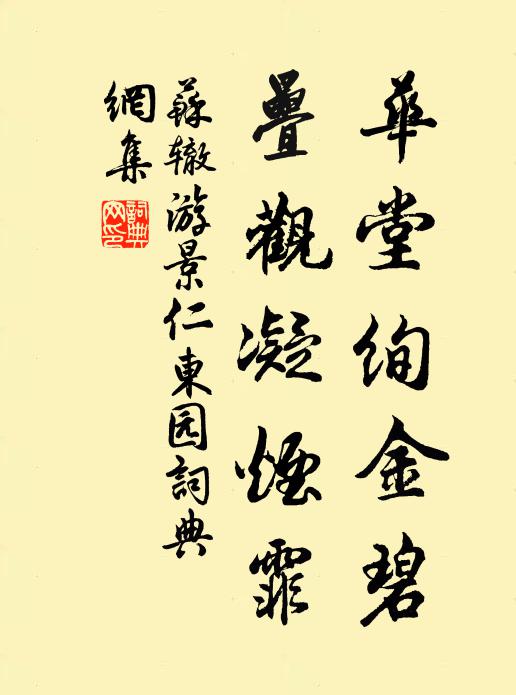 華堂絢金碧
疊觀凝煙霏
蘇辙游景仁東园詞典
網集
詞典
网印